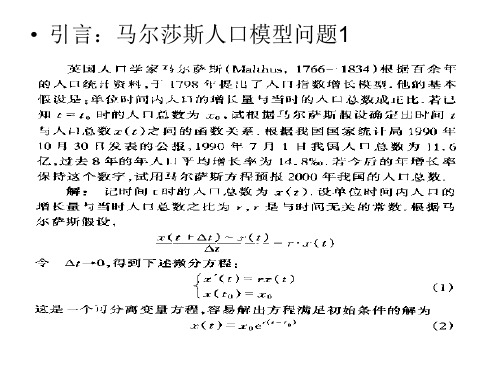 • 引言：马尔莎斯人口模型问题1
英国人口学家马尔萨斯(Malthus, 1766-1834)根据百余年
的人口统计资料,于1798年提出了人口指数增长模型.他的基本
假设是:单位时间内人口的增长量与当时的人口总数成正比.若已
知 t = t₀ 时的人口总数为 x₀,试根据马尔萨斯假设确定出时间 t
与人口总数 x(t) 之间的函数关系.根据我国国家统计局1990年
10月30日发表的公报,1990年7月1日我国人口总数为11.6
亿,过去8年的年人口平均增长率为14.8‰.若今后的年增长率
保持这个数字,试用马尔萨斯方程预报2000年我国的人口总数.
解: 记时间 t 时的人口总数为 x(t).设单位时间内人口的
增长量与当时人口总数之比为 r,r 是与时间无关的常数.根据马
尔萨斯假设,
x(t + Δt) - x(t)
Δt = r·x(t)
令 Δt→0,得到下述微分方程:
x′(t) = rx(t)
x(t₀) = x₀ (1)
这是一个可分离变量方程,容易解出方程满足初始条件的解为
x(t) = x₀e^{r(t-t₀)} (2)